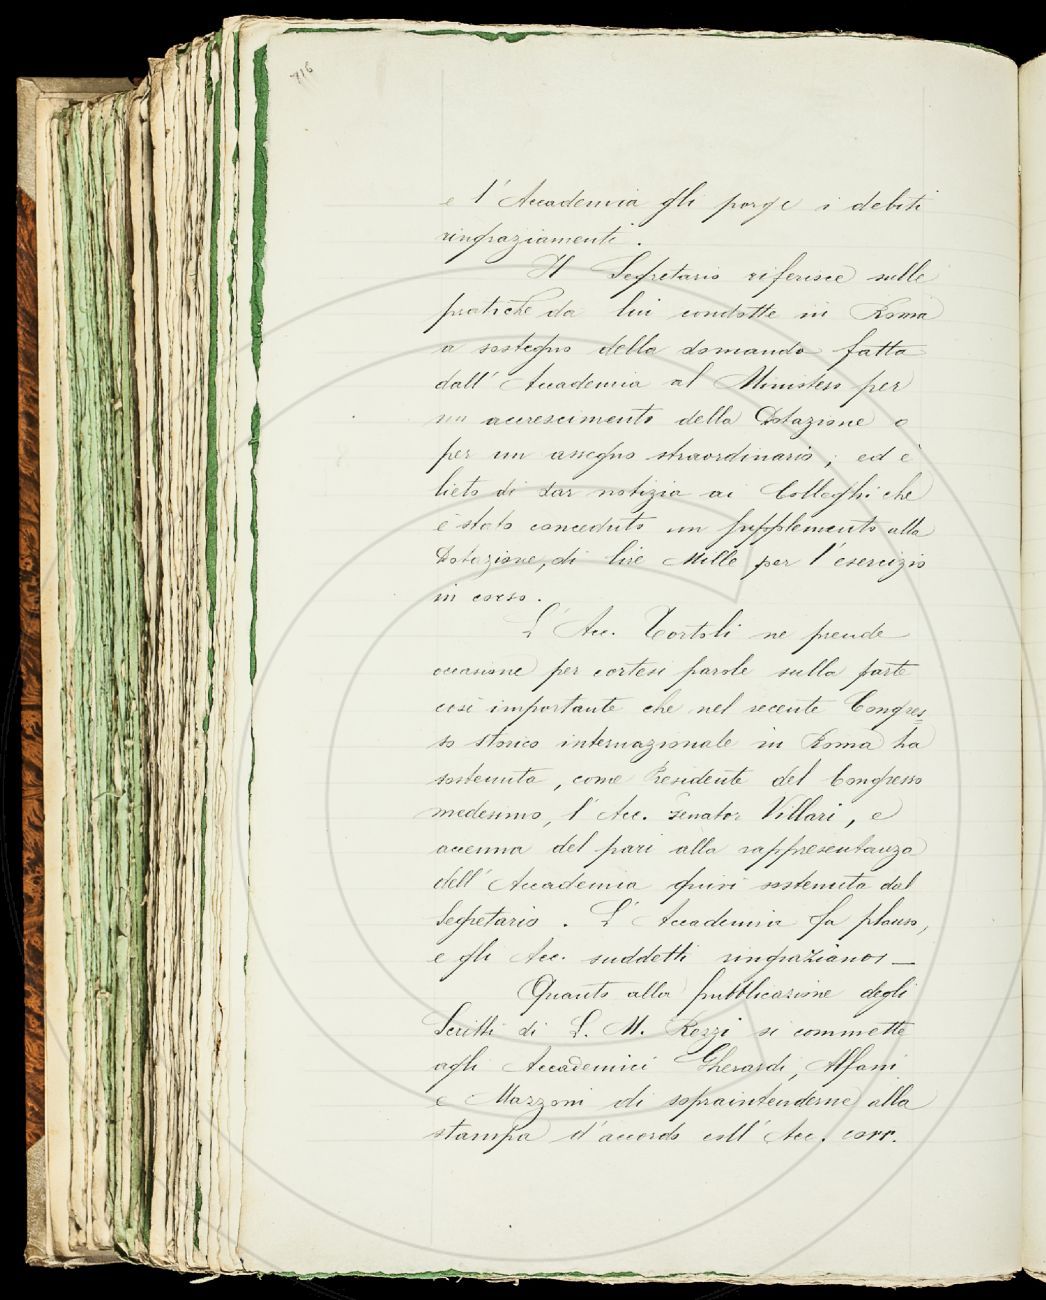 716
e l'Accademia gli porge i debiti
ringraziamenti.
Il Segretario riferisce sulle
pratiche da lui condotte in Roma
a sostegno della domanda fatta
dall'Accademia al Ministero per
un accrescimento della Dotazione o
per un assegno straordinario; ed è
lieto di dar notizia ai Colleghi che
è stato conceduto un supplemento alla
Dotazione, di lire Mille per l'esercizio
in corso.
L'Acc. Tortoli ne prende
occasione per cortesi parole sulla parte
così importante che nel recente Congres=
so storico internazionale in Roma ha
sostenuta, come Presidente del Congresso
medesimo, l'Acc. Senator Villari, e
accenna del pari alla rappresentanza
dell'Accademia quivi sostenuta dal
Segretario. L'Accademia fa plauso,
e gli Acc. suddetti ringraziano —
Quanto alla pubblicazione degli
Scritti di L. M. Rezzi si commette
agli Accademici Gherardi, Alfani
e Mazzoni di sopraintenderne alla
stampa d'accordo coll'Acc. corr.